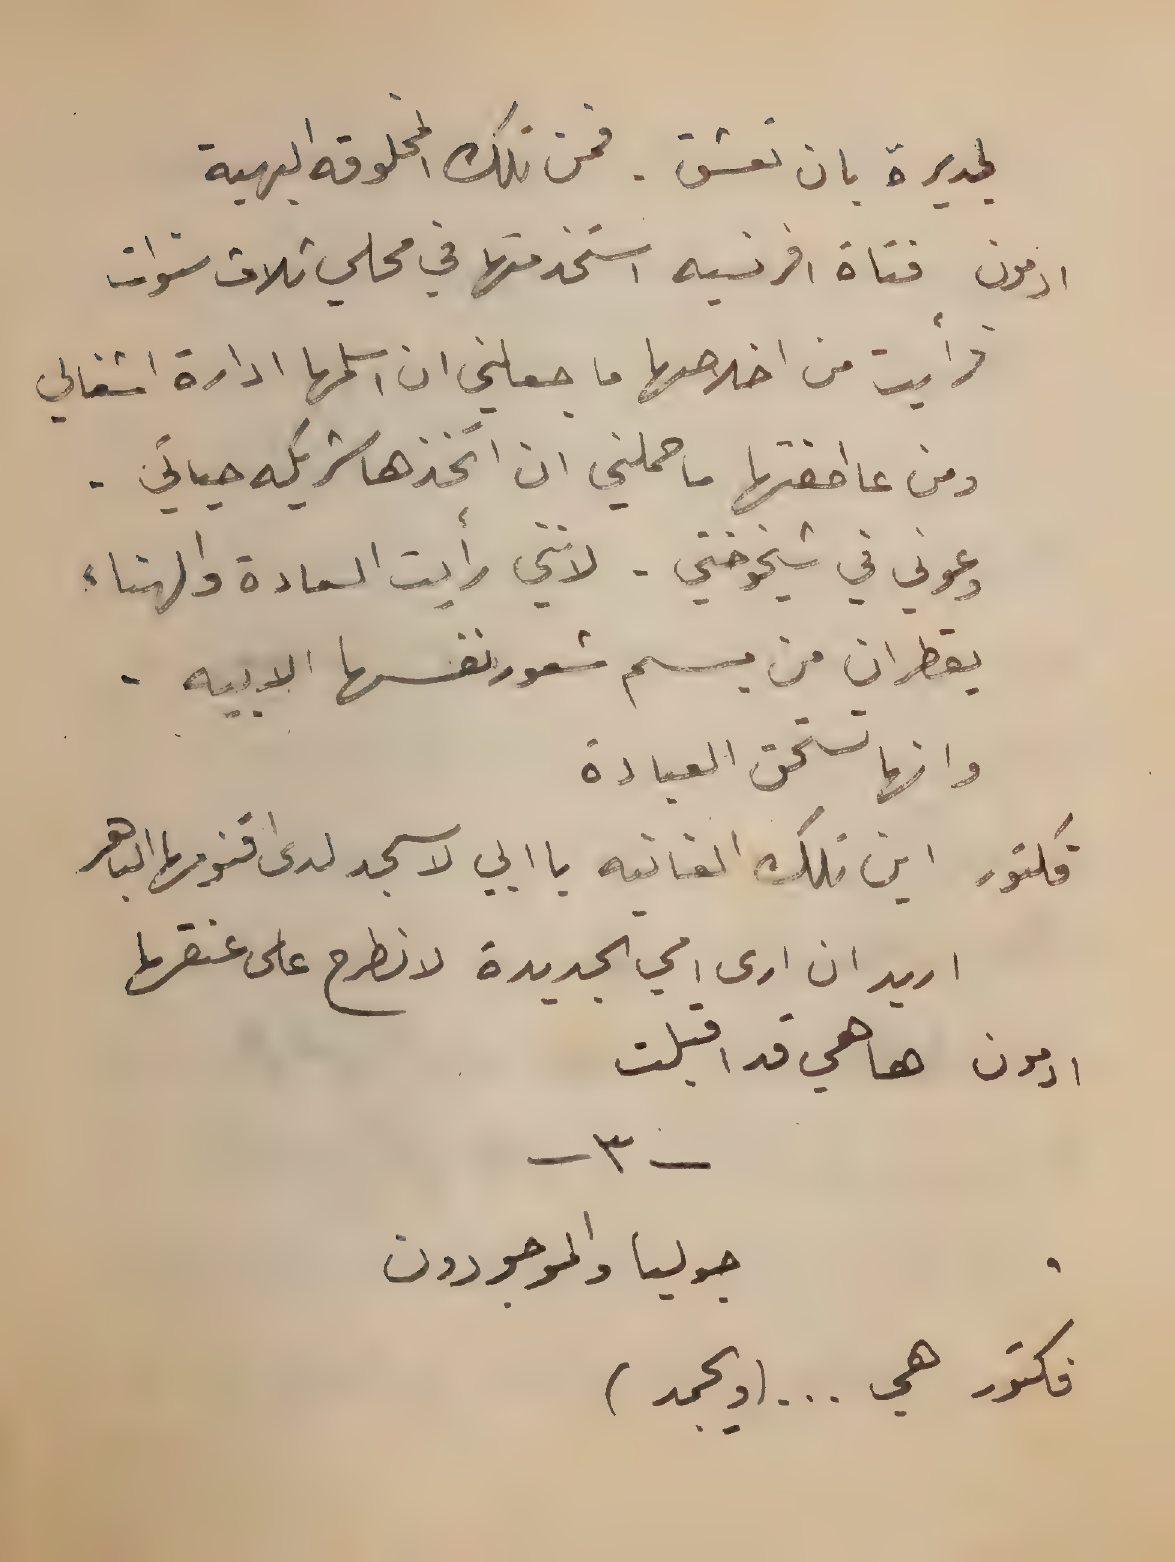 لجديرة بان تعشق . فمن تلك المخلوقه البهية
ادمون فتاة افرنسيه استخدمتها في محلي ثلاث سنوات
فرأيت من اخلاصها ما جعلني ان اسلمها ادارة اشغالي
ومن عاطفتها ما حملني ان اتخذها شريكه حياتي -
وعوني في شيخوختي - لانني رأيت السعادة والهناء
يقطران من بسم شعور نفسها الابيه -
وانها تستحق العبادة
فكتور اين تلك الغانيه يا ابي لاسجد لدى اقنومها الباهر
اريد ان ارى امي الجديدة لانطرح على عنقها
ادمون ها هي قد اقبلت
— ٣ —
جوليا والموجودون
فكتور هي ... (ويجمد)